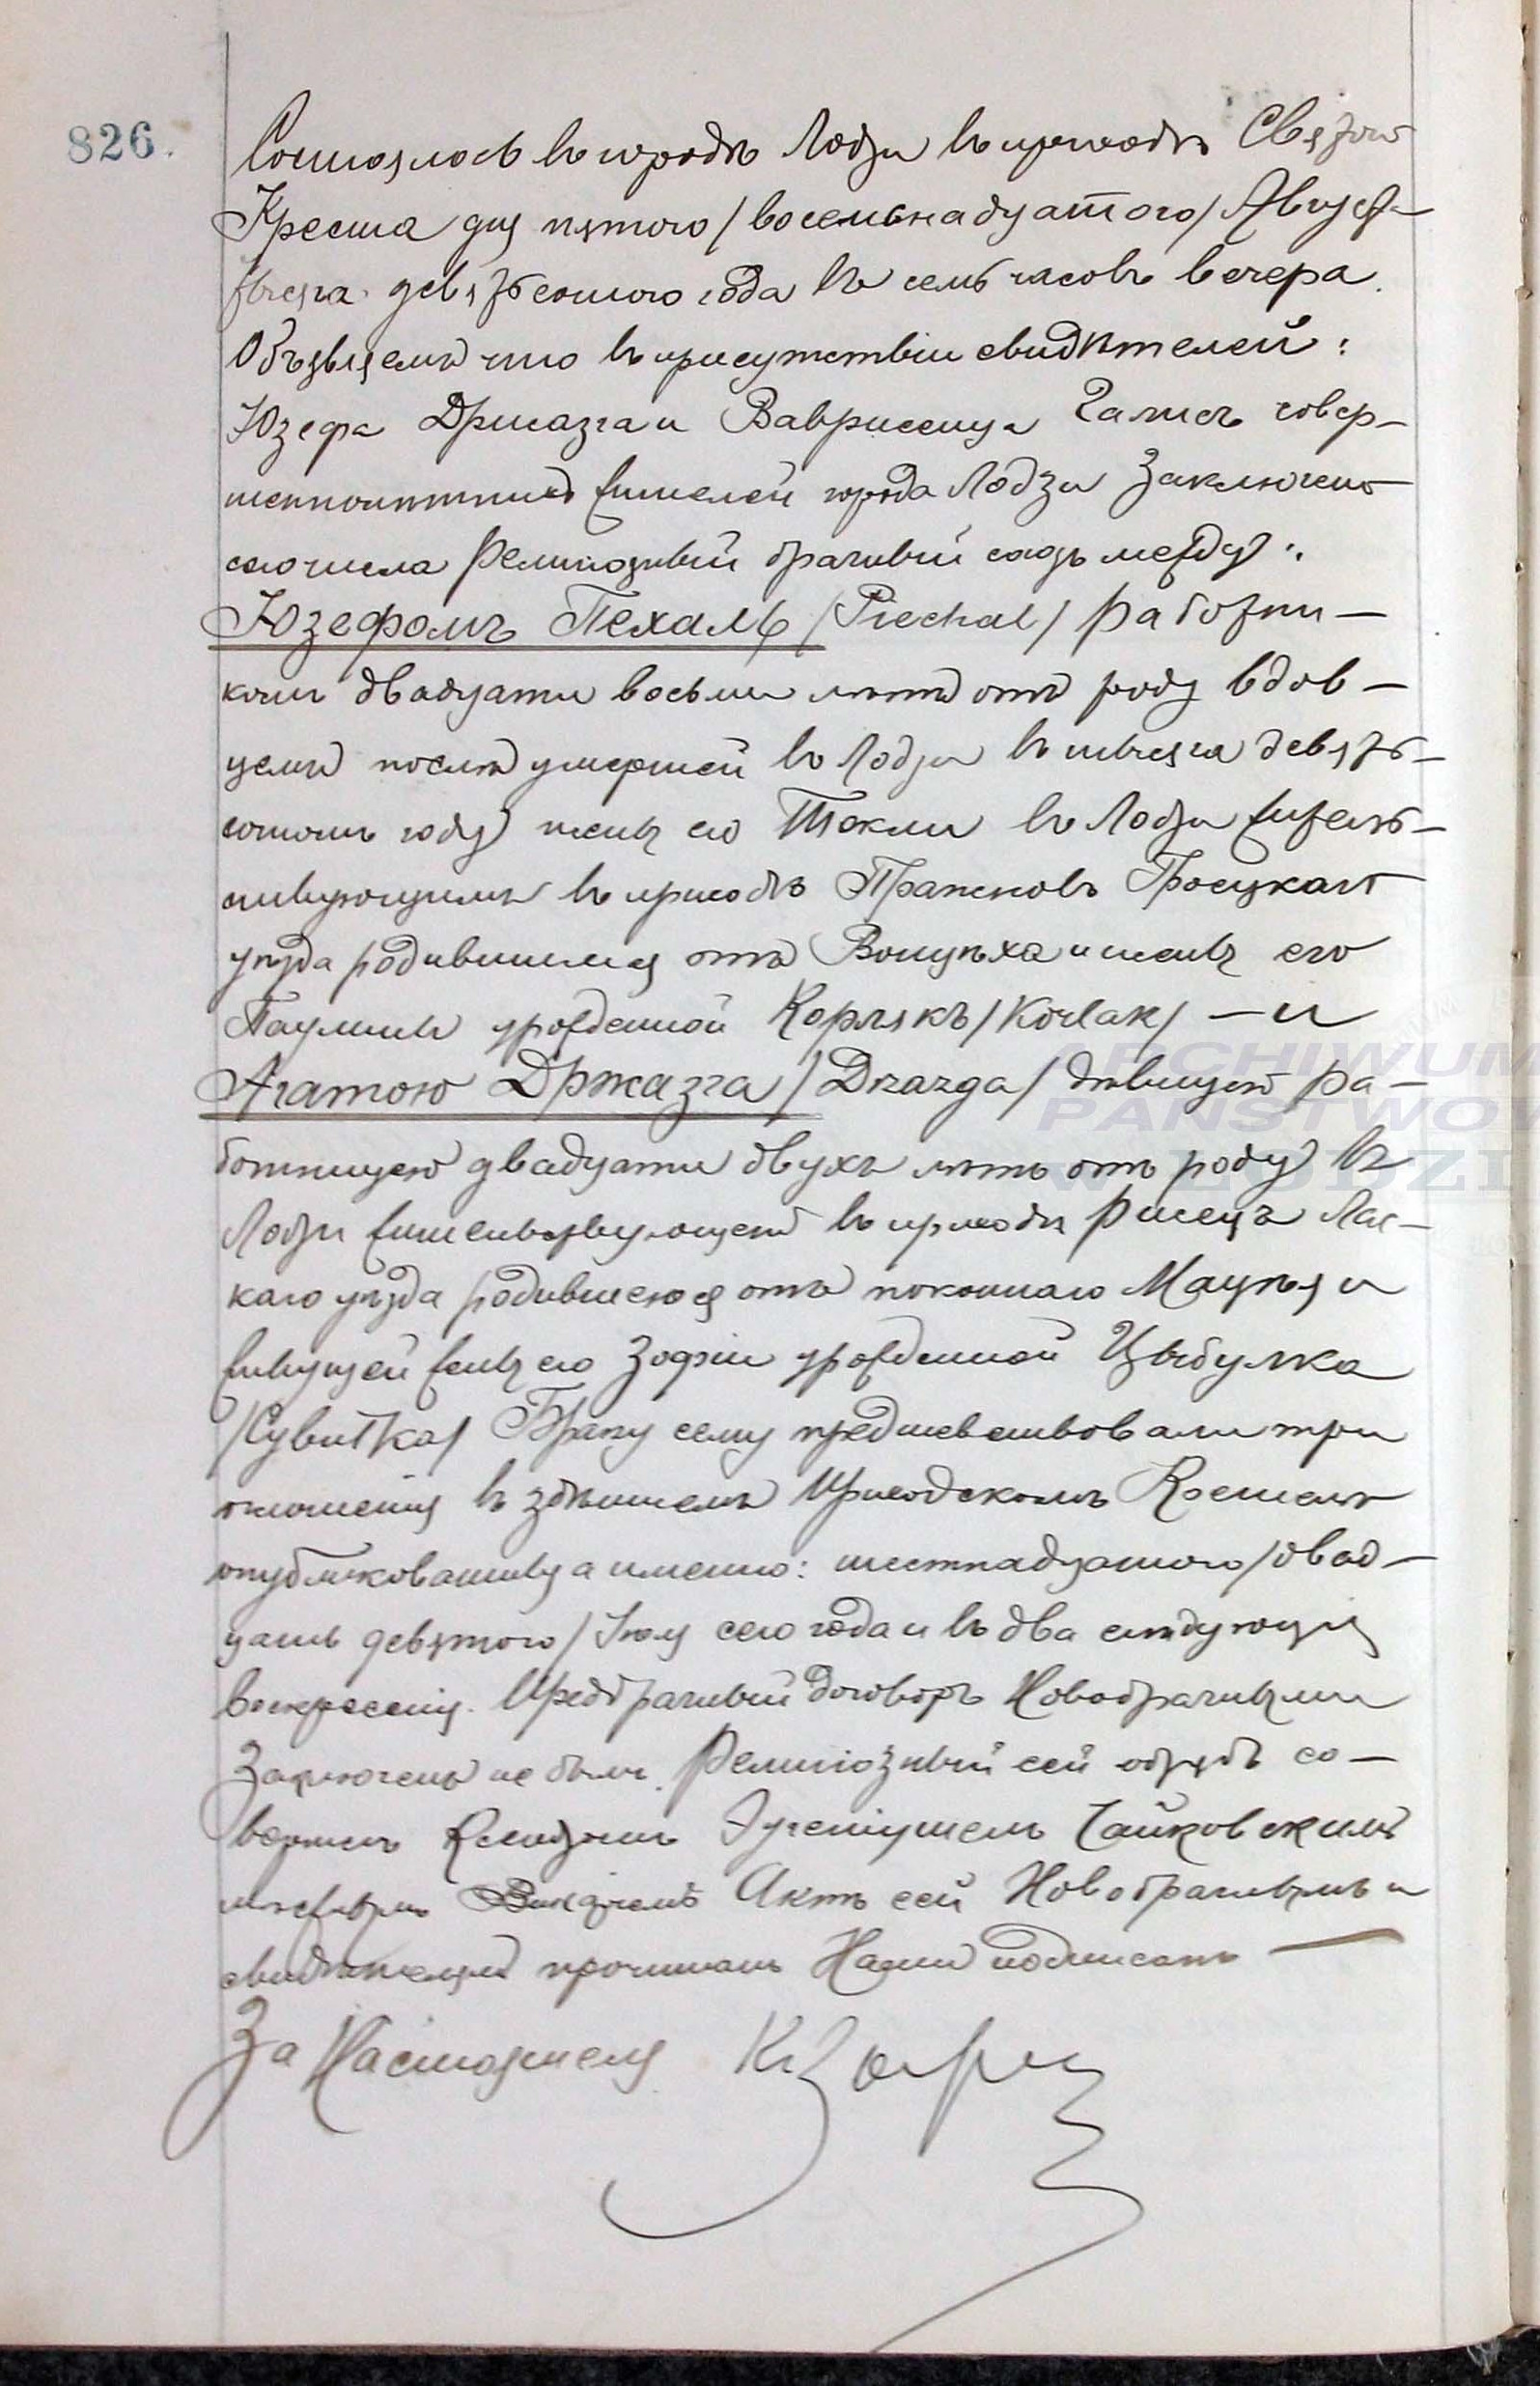 826.
Состоялось въ городѣ Лодзи въ приходѣ Святого
Креста дня пятого /восемьнадцатого/ Августа
тысяча девятьсотого года въ семь часовъ вечера.
Объявляемъ что въ присутствіи свидѣтелей:
Юзефа Држазга и Вавринца совер-
шеннолѣтнихъ жителей города Лодзи заключенъ
сего числа религіозный брачный союзъ между:
Юзефомъ Пехаль /Piechal/ работни-
комъ двадцати восьми лѣтъ отъ роду вдов-
цемъ послѣ умершей въ Лодзи въ тысяча девять-
сотомъ году жены его Текли въ Лодзи житель-
ствующимъ въ приходѣ Пражковъ
уѣзда родившимся отъ Войцѣха и жены его
Паулины урожденной Корлякъ /Korlak/ — и
Агатою Држазга /Drzazga/ дѣвицею ра-
ботницею двадцати двухъ лѣтъ отъ роду въ
Лодзи жительствующею въ приходѣ Лас-
каго уѣзда родившеюся отъ покойнаго Мацѣя и
живущей жены его Зофіи урожденной Цыбулка
/Cybulka/ Браку сему предшествовали три
оглашенія въ здѣшнемъ Приходскомъ Костелѣ
опубликованныя а именно: шестнадцатого /двад-
цать девятого/ Іюля сего года и въ два слѣдующія
воскресенія. Предбрачный договоръ Новобрачными
заключенъ не былъ. Религіозный сей обрядъ со-
вершенъ Ксендзомъ Чайковскимъ
мѣстнымъ Викаріемъ Актъ сей Новобрачнымъ и
свидѣтелямъ прочитанъ Нами подписанъ —
За Настоятеля